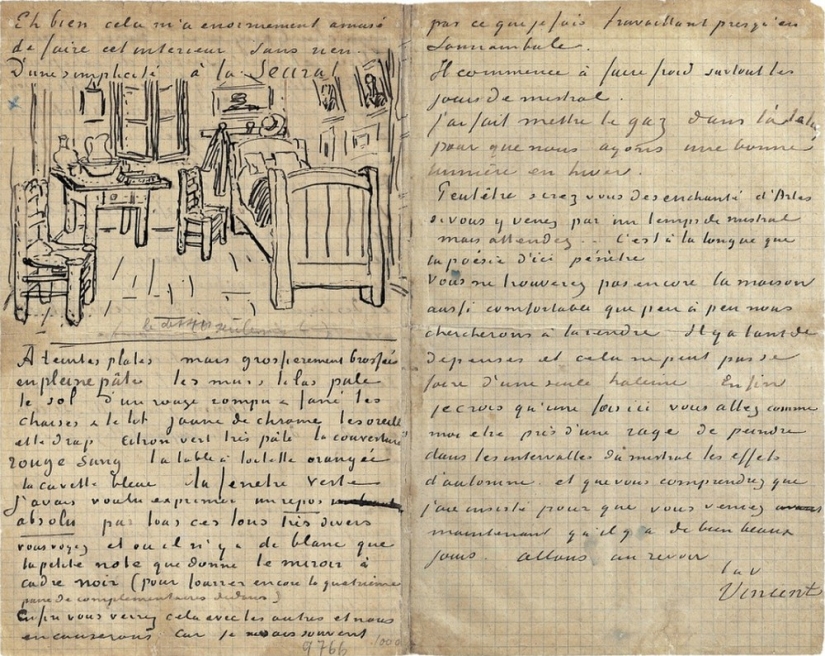 Eh bien cela m'a enormement amusé
de faire cet interieur sans rien.
D'une simplicité à la Seurat
le dessin seulement
À teintes plates mais grossierement brossées
en pleine pâte les murs lilas pale
le sol d'un rouge rompu & fané les
chaises & le lit jaune de chrome les oreillers
et le drap citron vert très pâle la couverture
rouge sang la table à toilette orangée
la cuvette bleue la fenetre verte
J'avais voulu exprimer un repos
absolu par tous ces tons très divers
vous voyez et où il n'y a de blanc que
la petite note que donne le miroir à
cadre noir (pour fourrer encore la quatrième
paire de complementaires dedans)
Enfin vous verrez cela avec les autres et nous
en causerons car je ne sais souvent
9766
pas ce que je fais travaillant presqu'en
somnambule.
Il commence à faire froid surtout les
jours de mistral.
j'ai fait mettre le gaz dans
pour que nous ayons une bonne
lumière en hiver.
Peutêtre serez vous desenchanté d'Arles
si vous y venez par un temps de mistral
mais attendez.. C'est à la longue que
la poésie d'ici pénètre
Vous ne trouverez pas encore la maison
aussi comfortable que peu à peu nous
chercherons à la rendre Il y a tant de
depenses et cela ne peut pas se
faire d'une seule haleine Enfin
je crois qu'une fois ici vous allez comme
moi etre pris d'une rage de peindre
dans les intervalles du mistral les effets
d'automne. et que vous comprendrez que
j'aie insisté pour que vous veniez
maintenant qu'il y a de bien beaux
jours. allons au revoir
t.à.v
Vincent